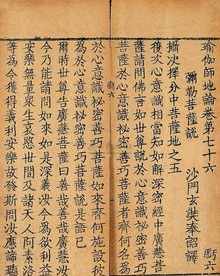 瑜伽師地論卷第七十六
彌勒菩薩說
沙門玄奘奉詔譯
攝決擇分中菩薩地之五
復次心意識相當知如解深密經中廣慧菩
薩請問佛言如世尊說於心意識祕密善巧
菩薩於心意識祕密善巧菩薩者齊何名為
於心意識祕密善巧菩薩如來齊何施設彼
為於心意識祕密善巧菩薩說是語已
爾時世尊告廣慧菩薩曰善哉善哉廣慧汝
今乃能請問如來如是深義汝今為欲利益
安樂無量眾生哀愍世間及諸天人阿素洛
等為令獲得義利安樂故發斯問汝應諦聽